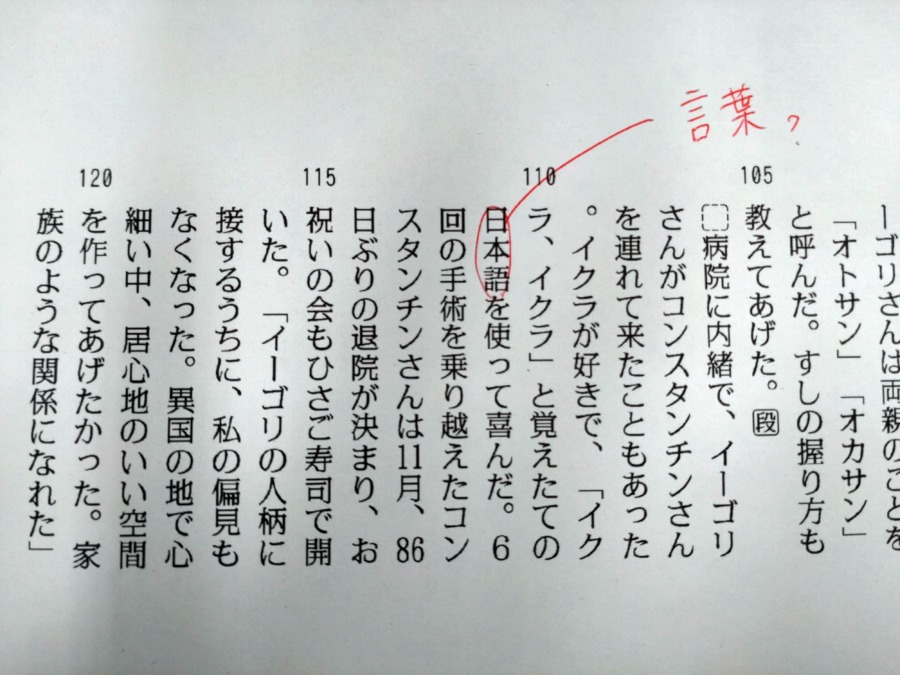 言葉?
ーゴリさんは両親のことを
「オトサン」「オカサン」
と呼んだ。すしの握り方も
105
教えてあげた。段
病院に内緒で、イーゴリ
さんがコンスタンチンさん
を連れて来たこともあった
。イクラが好きで、「イク
110
ラ、イクラ」と覚えたての
日本語を使って喜んだ。6
回の手術を乗り越えたコン
スタンチンさんは11月、86
日ぶりの退院が決まり、お
115
祝いの会もひさご寿司で開
いた。「イーゴリの人柄に
接するうちに、私の偏見も
なくなった。異国の地で心
細い中、居心地のいい空間
120
を作ってあげたかった。家
族のような関係になれた」